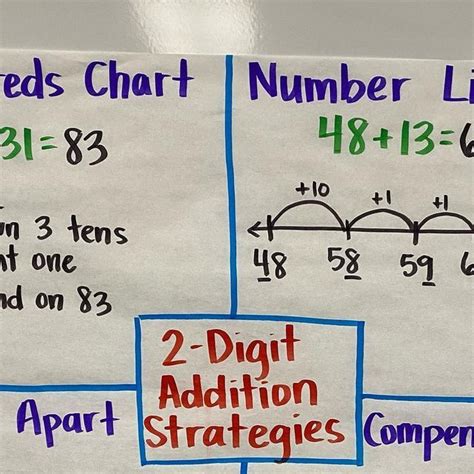 eds Chart
31=83
n 3 tens
t one
nd on 83
Number Li
48+13=6
+10 +1 +1
48 58 59 6
2-Digit
Addition
Strategies
Apart
Compen